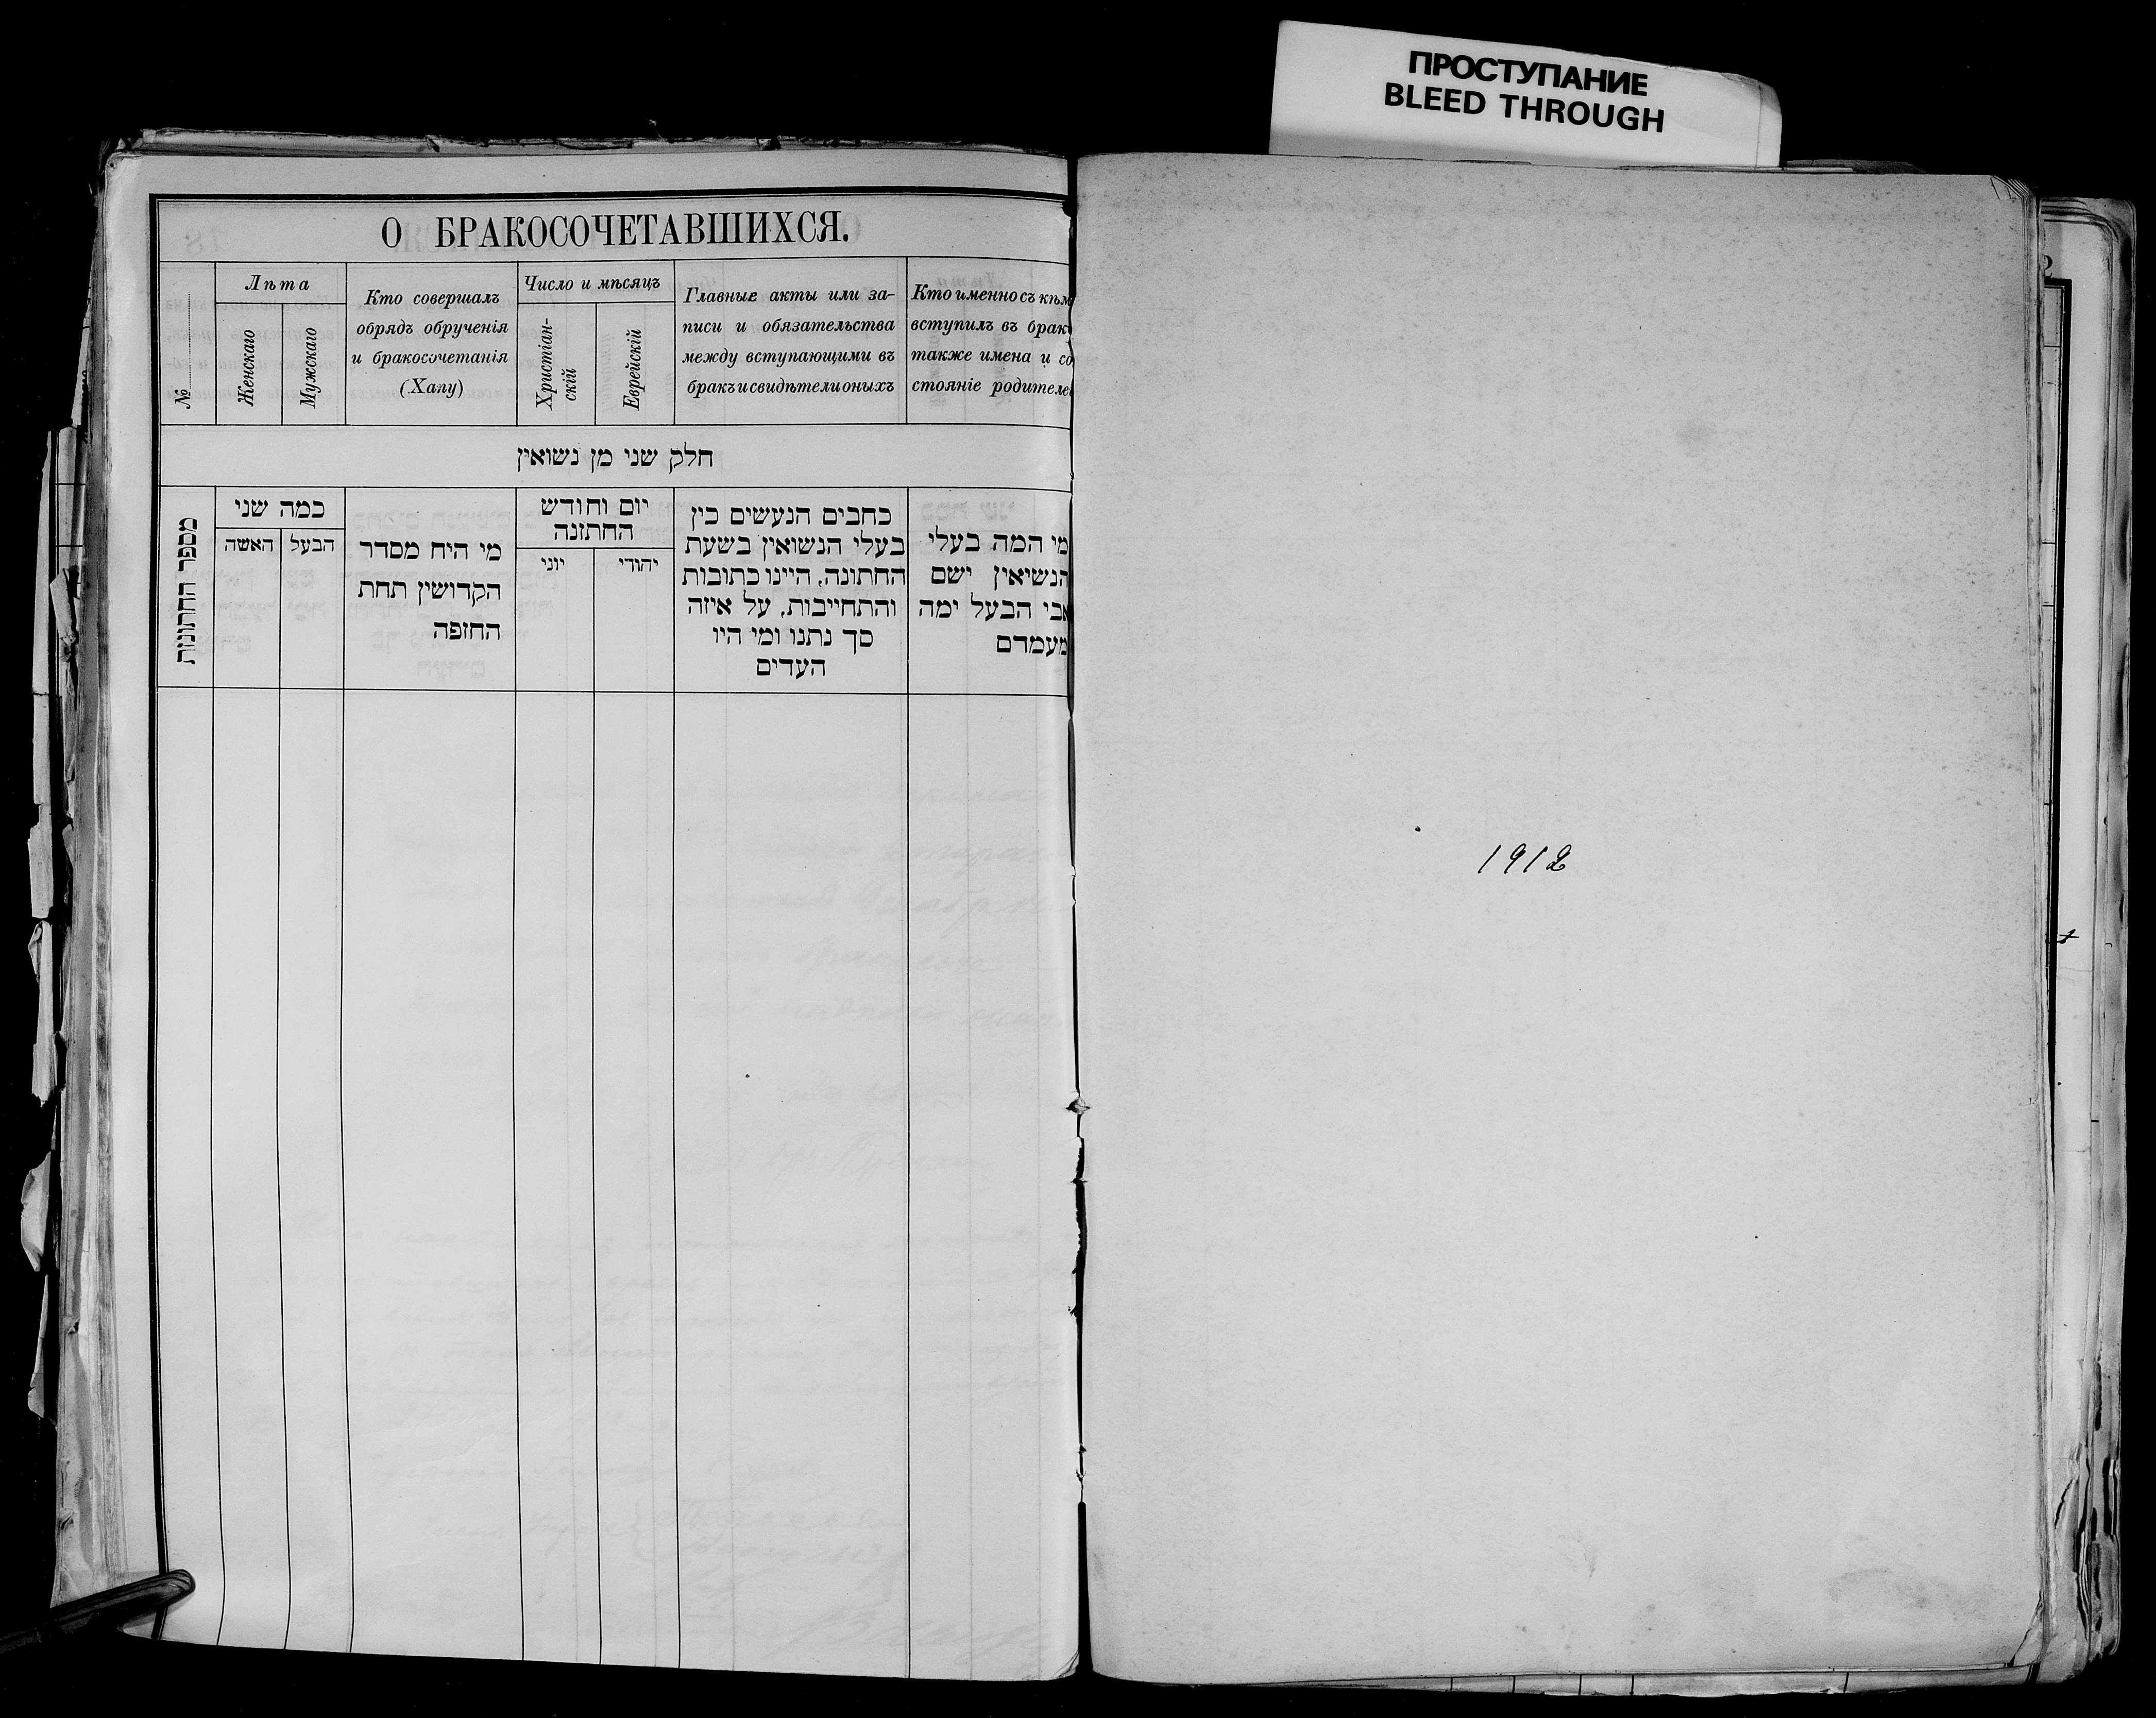 ПРОСТУПАНИЕ
BLEED THROUGH
О БРАКОСОЧЕТАВШИХСЯ.
№
Лѣта
Женскаго
Мужскаго
Кто совершалъ
обрядъ обрученія
и бракосочетанія
(Хапу)
Число и мѣсяцъ
Христіан-
скій
Еврейскій
Главные акты или за-
писи и обязательства
между вступающими въ
бракъ и свидѣтели оныхъ
Кто именно съ кѣм
вступилъ въ брак
также имена и со
стояніе родителе
חלק שני מן נשואין
מספר החתונות
כמה שני
האשה
הבעל
מי היח מסדר
הקדושין תחת
החזפה
יום וחודש
החתזנה
יוני
יהודי
כחבים הנעשים כין
בעלי הנשואין בשעת
החתונה, היינו כתובות
והתחייבות, על איזה
סך נתנו ומי היו
העדים
מי המה בעלי
הנשיאין ישם
אבי הבעל ימה
מעמדם
1912